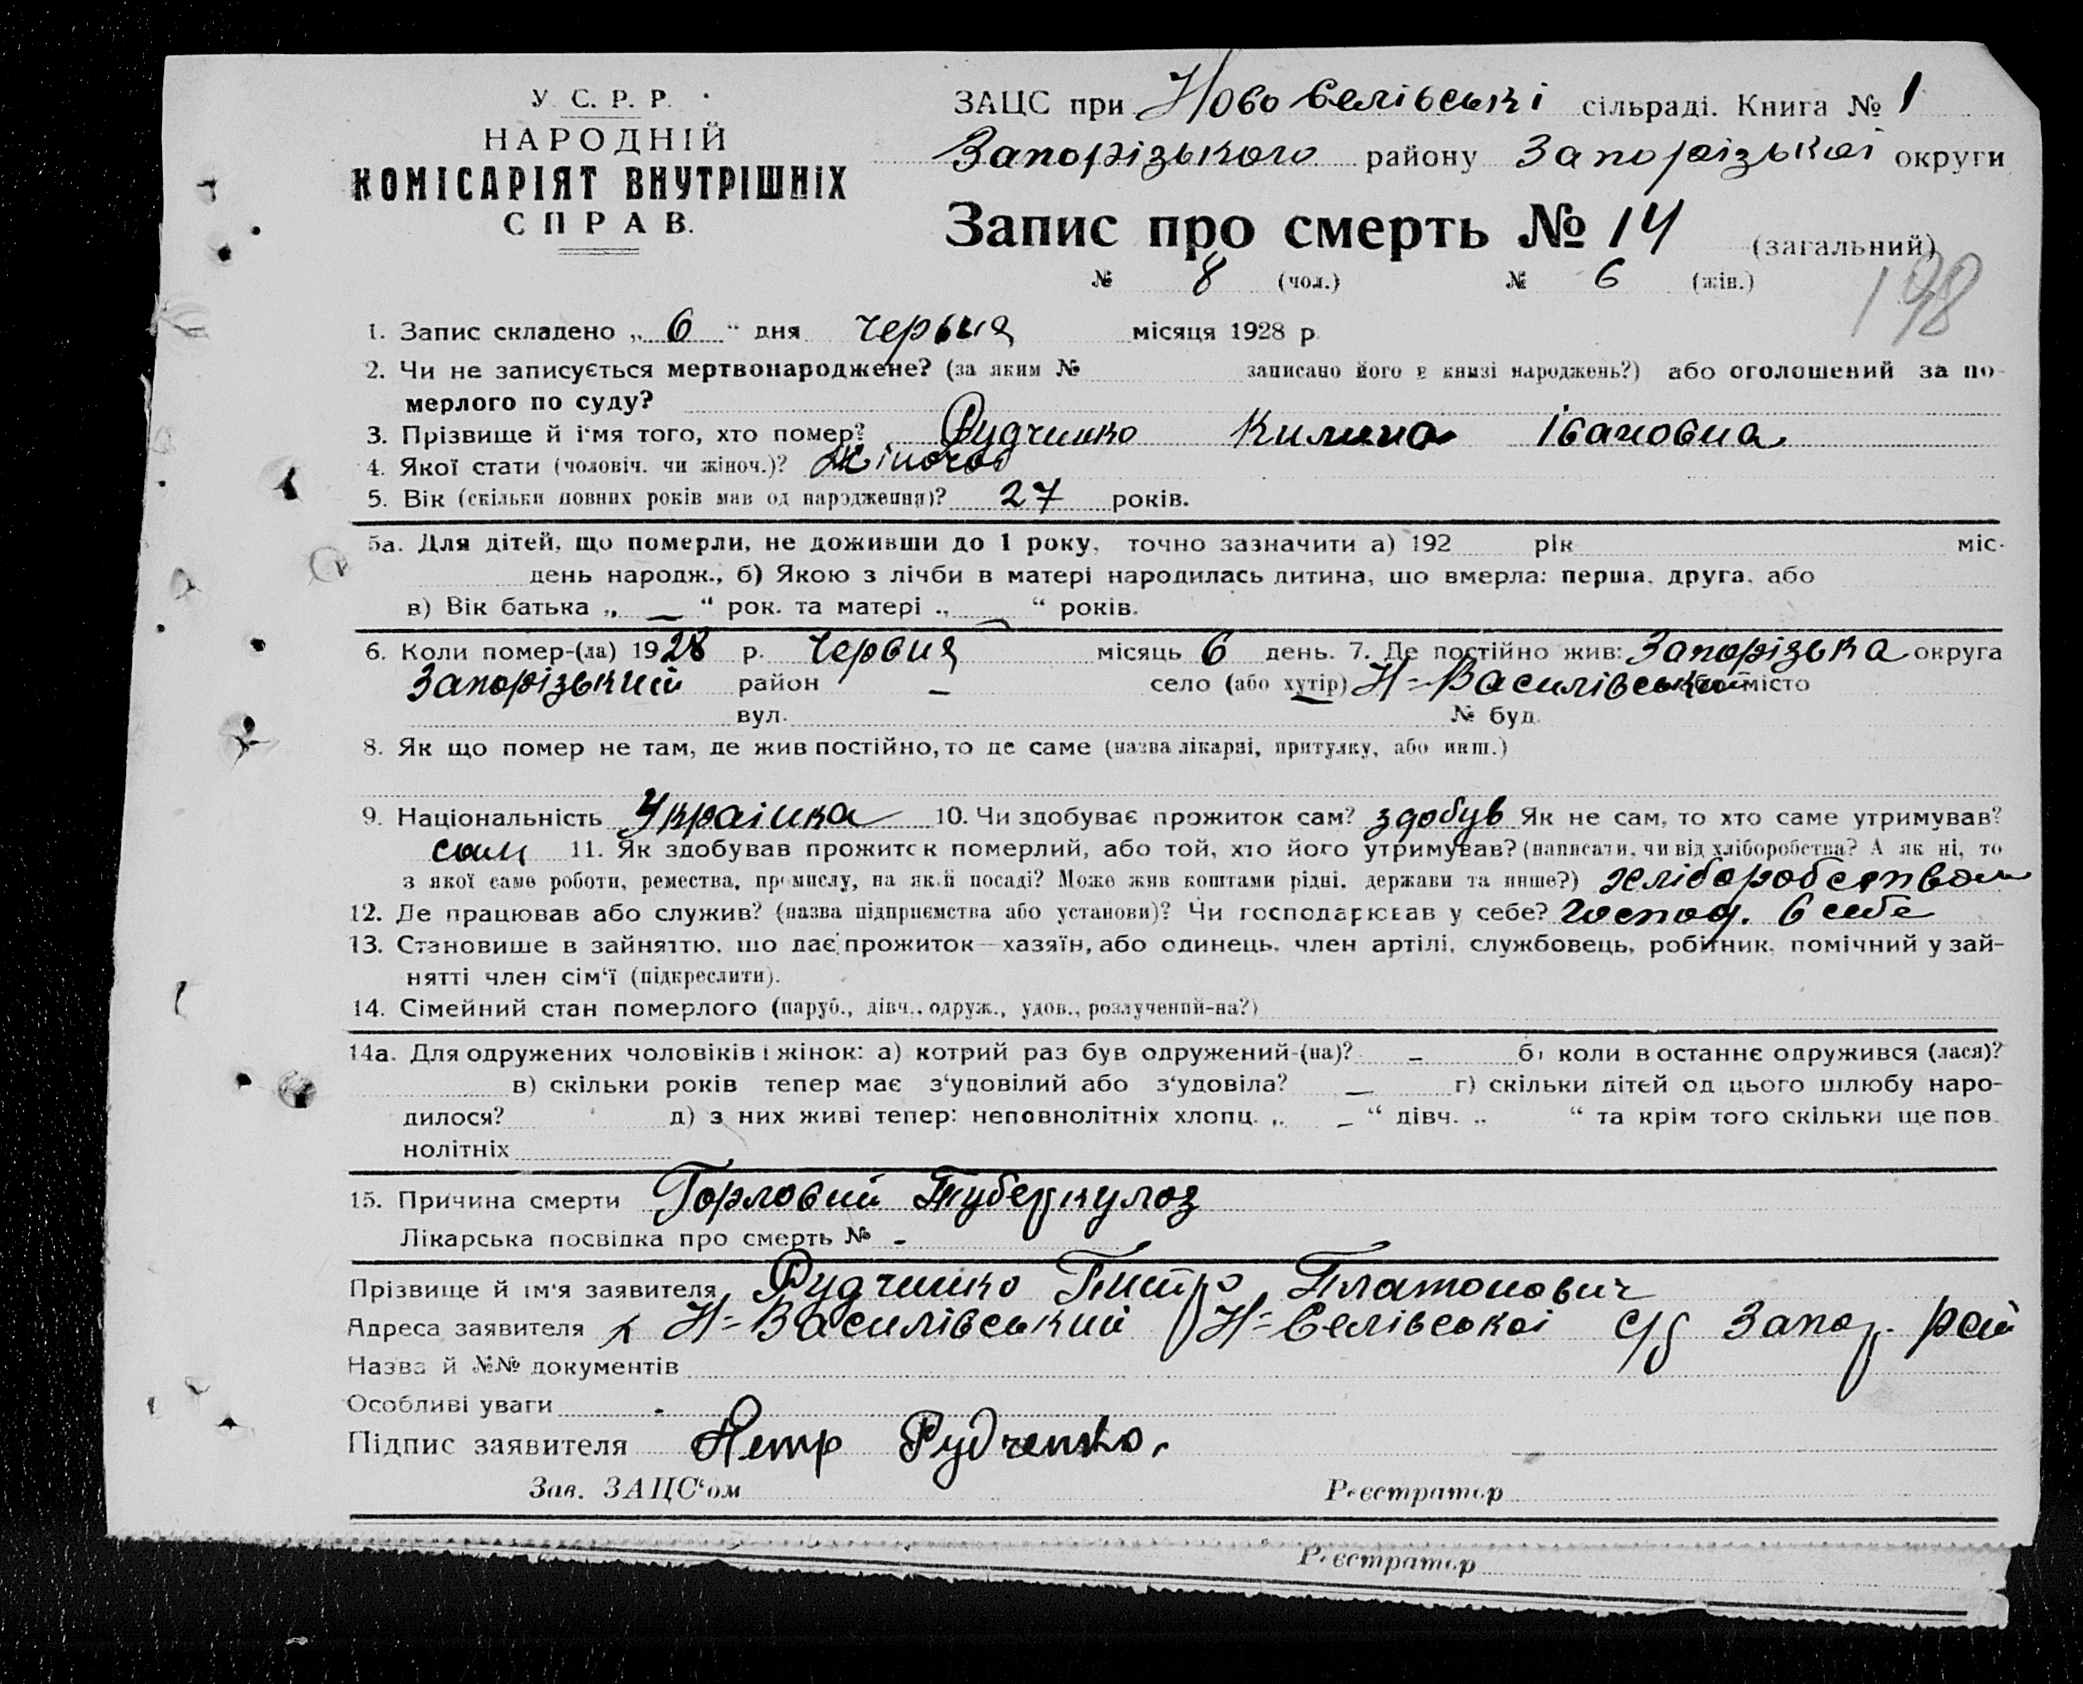 У. С. Р. Р.
НАРОДНІЙ
КОМІСАРІЯТ ВНУТРІШНІХ
СПРАВ.
ЗАЦС при Ново Селівські сільраді. Книга № 1
Запорізького району Запорізької округи
Запис про смерть № 14 (загальний)
№ 8 (чол.) № 6 (жін.)
198
1. Запис складено „ 6 “ дня червня місяця 1928 р.
2. Чи не записується мертвонароджене? (за яким № записано його в книзі народжень?) або оголошений за по-
мерлого по суду?
3. Прізвище й і'мя того, хто помер? Рудченко Килина Івановна
4. Якої стати (чоловіч. чи жіноч.)? Жіноча
5. Вік (скільки повних років мав од народження)? 27 років.
5а. Для дітей, що померли, не доживши до 1 року, точно зазначити а) 192 рік міс.
день народж., б) Якою з лічби в матері народилась дитина, що вмерла: перша, друга, або
в) Вік батька „ — “ рок. та матері „ — “ років.
6. Коли помер-(ла) 1928 р. Червня місяць 6 день. 7. Де постійно жив: Запорізька округа
Запорізький район — село (або хутір) Н=Василівський місто
вул. № буд.
8. Як що помер не там, де жив постійно, то де саме (назва лікарні, притулку, або инш.)
9. Національність Українка 10. Чи здобуває прожиток сам? здобув Як не сам, то хто саме утримував?
сам 11. Як здобував прожиток померлий, або той, хто його утримував? (написати, чи від хліборобства? А як ні, то
з якої саме роботи, ремества, промислу, на якій посаді? Може жив коштами рідні, держави та инше?) хліборобством
12. Де працював або служив? (назва підприємства або установи)? Чи господарював у себе? Господ. в себе
13. Становище в зайняттю, що дає прожиток—хазяїн, або одинець, член артілі, службовець, робітник, помічний у зай-
нятті член сім'ї (підкреслити).
14. Сімейний стан померлого (паруб., дівч., одруж., удов., розлучений-на?)
14а. Для одружених чоловіків і жінок: а) котрий раз був одружений-(на)? – б) коли в останнє одружився (лася)?
в) скільки років тепер має з'удовілий або з'удовіла? — г) скільки дітей од цього шлюбу наро-
дилося? д) з них живі тепер: неповнолітніх хлопц. „ – “ дівч. „ “ та крім того скільки ще пов.
нолітніх
15. Причина смерти Горловий Туберкулоз
Лікарська посвідка про смерть № -
Прізвище й ім'я заявителя Рудченко Питро Платонович
Адреса заявителя х Н=Василівський Н=Селівської с/р Запор. рай
Назва й №№ документів
Особливі уваги -
Підпис заявителя Петр Рудченко.
Зав. ЗАЦС'ом Реєстратор
Реєстратор